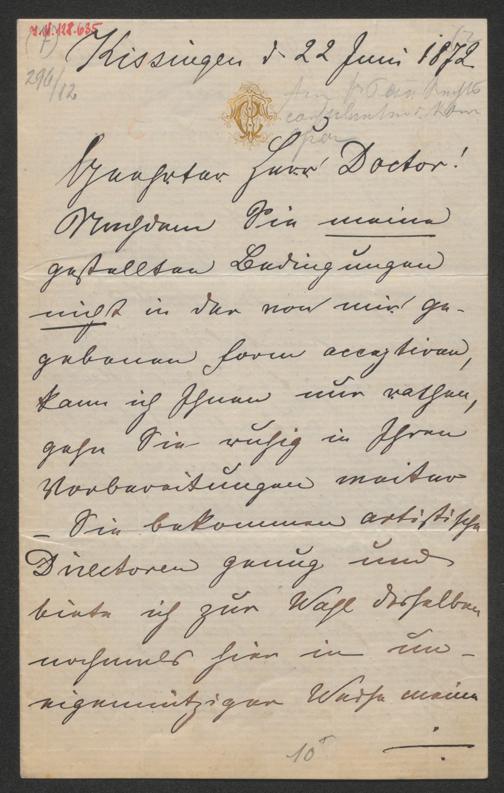 I.N. 128.635
Kissingen d 22 Juni 1872
296/12
Geehrter Herr Doctor!
Nachdem Sie meine
gestellten Bedingungen
nicht in der von mir ge-
gebenen Form acceptiren,
kann ich Ihnen nur rathen,
gehn Sie ruhig in Ihren
Vorbereitungen weiter
– Sie bekommen artistische
Directoren genug und
biete ich zur Wahl desselben
nochmals hier in un-
eigennütziger Weise meine
10